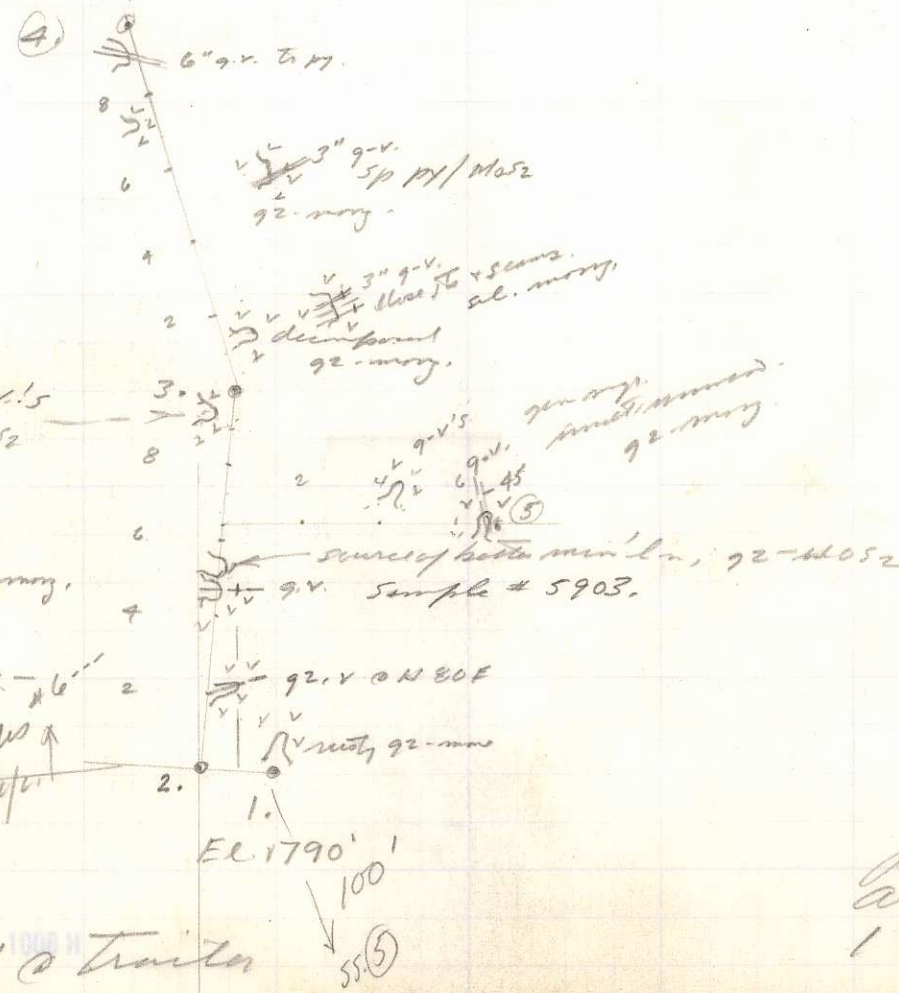 4.
6" q.v. Tr py.
8
6
3" q-v.
sp py/MoS2
qz-monz.
4
3" q-v.
+ seams.
sil. monz.
2
decomposed
qz-monz.
3.
8
2
4
q-v's
q.v.
6
45
5
qz-monz
6
source of better min'l'n, qz-MoS2
q.v. Sample # 5903.
monz.
4
2
qz.v @ N 80E
rusty qz-mon
2.
1.
El 1790'
100'
SS. 5
@ Trailer
1